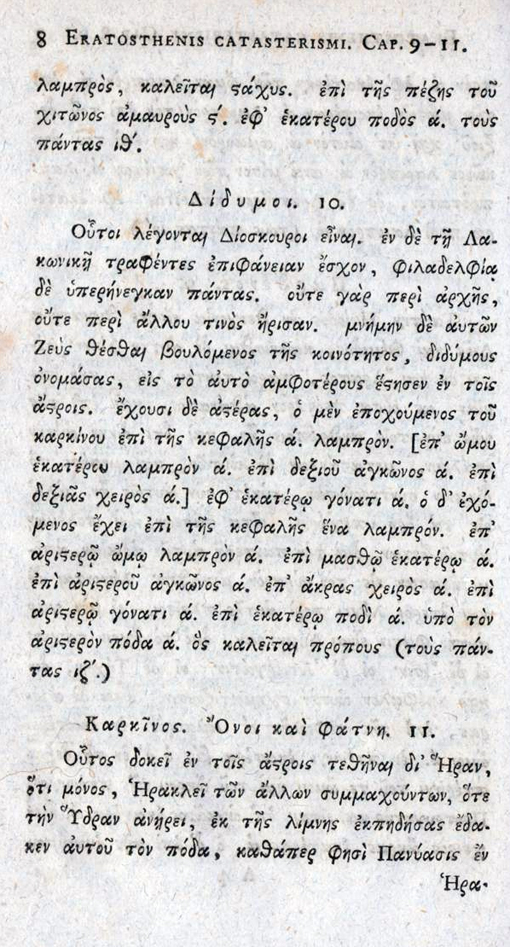 8 ERATOSTHENIS CATASTERISMI. CAP. 9-11.
λαμπρὸς, καλεῖται ϛάχυς. ἐπὶ τῆς πέζης τοῦ
χιτῶνος ἀμαυροὺς ϛ΄. ἐφ' ἑκατέρου ποδὸς ά. τοὺς
πάντας ιθ΄.
Δίδυμοι. 10.
Οὗτοι λέγονται Διόσκουροι εἶναι. ἐν δὲ τῇ Λα-
κωνικῇ τραφέντες ἐπιφάνειαν ἔσχον, φιλαδελφίᾳ
δὲ ὑπερήνεγκαν πάντας. οὔτε γὰρ περὶ ἀρχῆς,
οὔτε περὶ ἄλλου τινὸς ἤρισαν. μνήμην δὲ αὐτῶν
Ζεὺς θέσθαι βουλόμενος τῆς κοινότητος, διδύμους
ὀνομάσας, εἰς τὸ αὐτὸ ἀμφοτέρους ἔϛησεν ἐν τοῖς
ἄϛροις. ἔχουσι δὲ ἀϛέρας, ὁ μὲν ἐποχούμενος τοῦ
καρκίνου ἐπὶ τῆς κεφαλῆς ά. λαμπρόν. [ἐπ' ὤμου
ἑκατέρου λαμπρὸν ά. ἐπὶ δεξιοῦ ἀγκῶνος ά. ἐπὶ
δεξιᾶς χειρὸς ά.] ἐφ' ἑκατέρῳ γόνατι ά. ὁ δ' ἐχό-
μενος ἔχει ἐπὶ τῆς κεφαλῆς ἕνα λαμπρόν. ἐπ'
ἀριϛερῷ ὤμῳ λαμπρὸν ά. ἐπὶ μασθῷ ἑκατέρῳ ά.
ἐπὶ ἀριϛεροῦ ἀγκῶνος ά. ἐπ' ἄκρας χειρὸς ά. ἐπὶ
ἀριϛερῷ γόνατι ά. ἐπὶ ἑκατέρῳ ποδὶ ά. ὑπὸ τὸν
ἀριϛερὸν πόδα ά. ὃς καλεῖται πρόπους (τοὺς πάν-
τας ιζ΄.)
Καρκῖνος. Ὄνοι καὶ Φάτνη. 11.
Οὗτος δοκεῖ ἐν τοῖς ἄϛροις τεθῆναι δι' Ἥραν,
ὅτι μόνος, Ἡρακλεῖ τῶν ἄλλων συμμαχούντων, ὅτε
τὴν Ὕδραν ἀνῄρει, ἐκ τῆς λίμνης ἐκπηδήσας ἔδα-
κεν αὐτοῦ τὸν πόδα, καθάπερ φησὶ Πανύασις ἐν
Ἡρα-